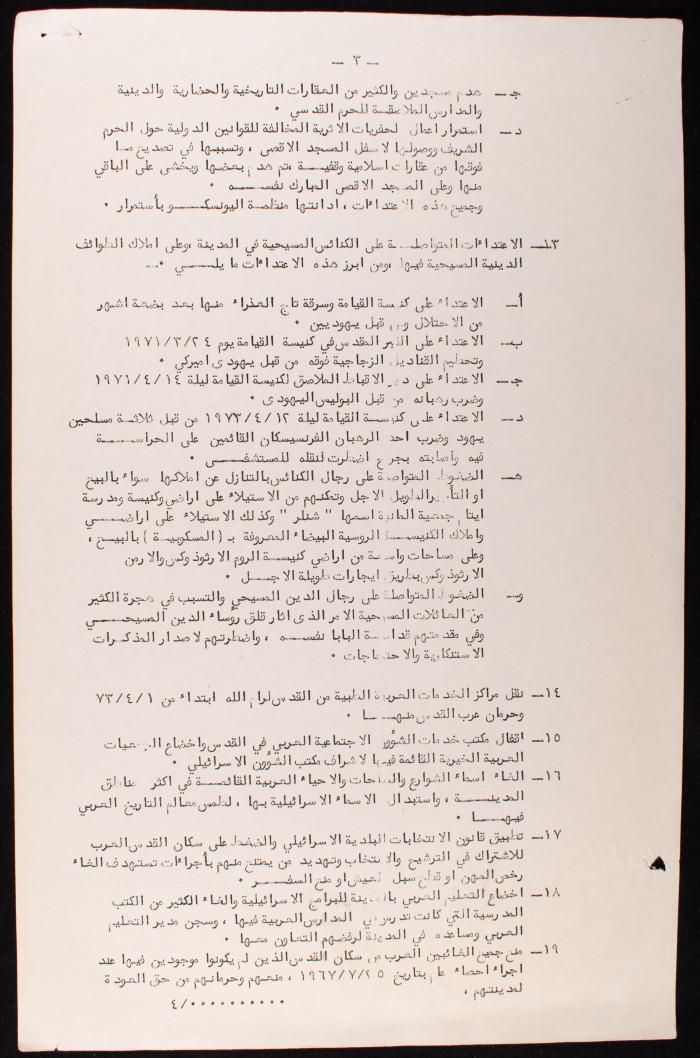 — ٣ —
جـ — هدم مسجدين والكثير من العقارات التاريخية والحضارية والدينية
والمدارس الملاصقة للحرم القدسي .
د — استمرار اعمال الحفريات الاثرية المخالفة للقوانين الدولية حول الحرم
الشريف ووصولها لاسفل المسجد الاقصى ، وتسببها في تصديع مـا
فوقها من عقارات اسلامية وقفيـة ،تم هدم بعضها ويخشى على الباقي
منها وعلى المسجد الاقصى المبارك نفسـه .
وجميع هذه الاعتداءات ، ادانتها منظمة اليونسكـو بأستمرار .
١٣— الاعتداءات المتواصلـة على الكنائس المسيحية في المدينة ،وعلى املاك الطوائف
الدينية المسيحية فيها ،ومن ابرز هذه الاعتداءات ما يلـي .—
أ — الاعتداء على كنيسة القيامة وسرقة تاج العذراء منها بعد بضعة اشهر
من الاحتلال ومن قبل يهوديين .
ب — الاعتداء على القبر المقدس في كنيسة القيامة يوم ١٩٧١/٣/٢٤
وتحطيم القناديل الزجاجية فوقه من قبل يهودى اميركي .
جـ — الاعتداء على دير الاقباط الملاصق لكنيسة القيامة ليلة ١٩٧١/٤/١٤
وضرب رهبانه من قبل البوليس اليهودى .
د — الاعتداء على كنيسة القيامة ليلة ١٩٧٣/٤/١٢ من قبل ثلاثـة مسلحين
يهود وضرب احد الرهبان الفرنسيسكان القائمين على الحراسـة
فيه واصابته بجرح اضطرت لنقله للمستشفـى .
هـ — الضغوط المتواصلة على رجال الكنائس بالتنازل عن املاكها سواء بالبيع
او التأجير الطويل الاجل وتمكنهم من الاستيلاء على اراضي وكنيسة ومدرسة
ايتام جمعية المانية اسمها " شنلر " وكذلك الاستيلاء على اراضـي
واملاك الكنيسـة الروسية البيضاء المعروفة بـ ( المسكوبية ) بالبيـع ،
وعلى مساحات واسعة من اراضي كنيسة الروم الارثوذوكس والارمن
الارثوذوكس بطريق ايجارات طويلة الاجـل .
و — الضغوط المتواصلة على رجال الدين المسيحي والتسبب في هجرة الكثير
من العائلات المسيحية الامر الذى اثار قلق رؤساء الدين المسيحـي
وفي مقدمتهم قداسة البابا نفسـه ، واضطرتهم لاصدار المذكـرات
الاستنكارية والاحتجاجات .
١٤— نقل مراكز الخدمات العربية الطبية من القدس لرام الله ابتداء من ٧٣/٤/١
وحرمان عرب القدس منهـا .
١٥— اقفال مكتب خدمات الشؤون الاجتماعية العربي في القدس واخضاع الجمعيات
العربية الخيرية القائمة فيها لاشراف مكتب الشؤون الاسرائيلي .
١٦— الغاء اسماء الشوارع والساحات والاحياء العربية القائمـة في اكثر مناطق
المدينـة ، واستبدال الاسماء الاسرائيلية بها ، لطمس معالم التاريخ العربي
فيهـا .
١٧— تطبيق قانون الانتخابات البلدية الاسرائيلي والضغط على سكان القدس العرب
للاشتراك في الترشيح والانتخاب وتهديد من يمتنع منهم بأجراءات تستهدف الغاء
رخص المهن او قطع سبل العيش او منع السفـر .
١٨— اخضاع التعليم العربي بالمدينة للبرامج الاسرائيلية والغاء الكثير من الكتب
المدرسية التي كانت تدرس في المدارس العربية فيها ، وسجن مدير التعليم
العربي ومساعده في المدينة لرفضهم التعاون معها .
١٩— منع جميع الغائبين العرب من سكان القدس الذين لم يكونوا موجودين فيها عند
اجراء احصاء عام بتاريخ ١٩٦٧/٧/٢٥ ، منعهم وحرمانهم من حق العودة
لمدينتهم ،
٤/..........